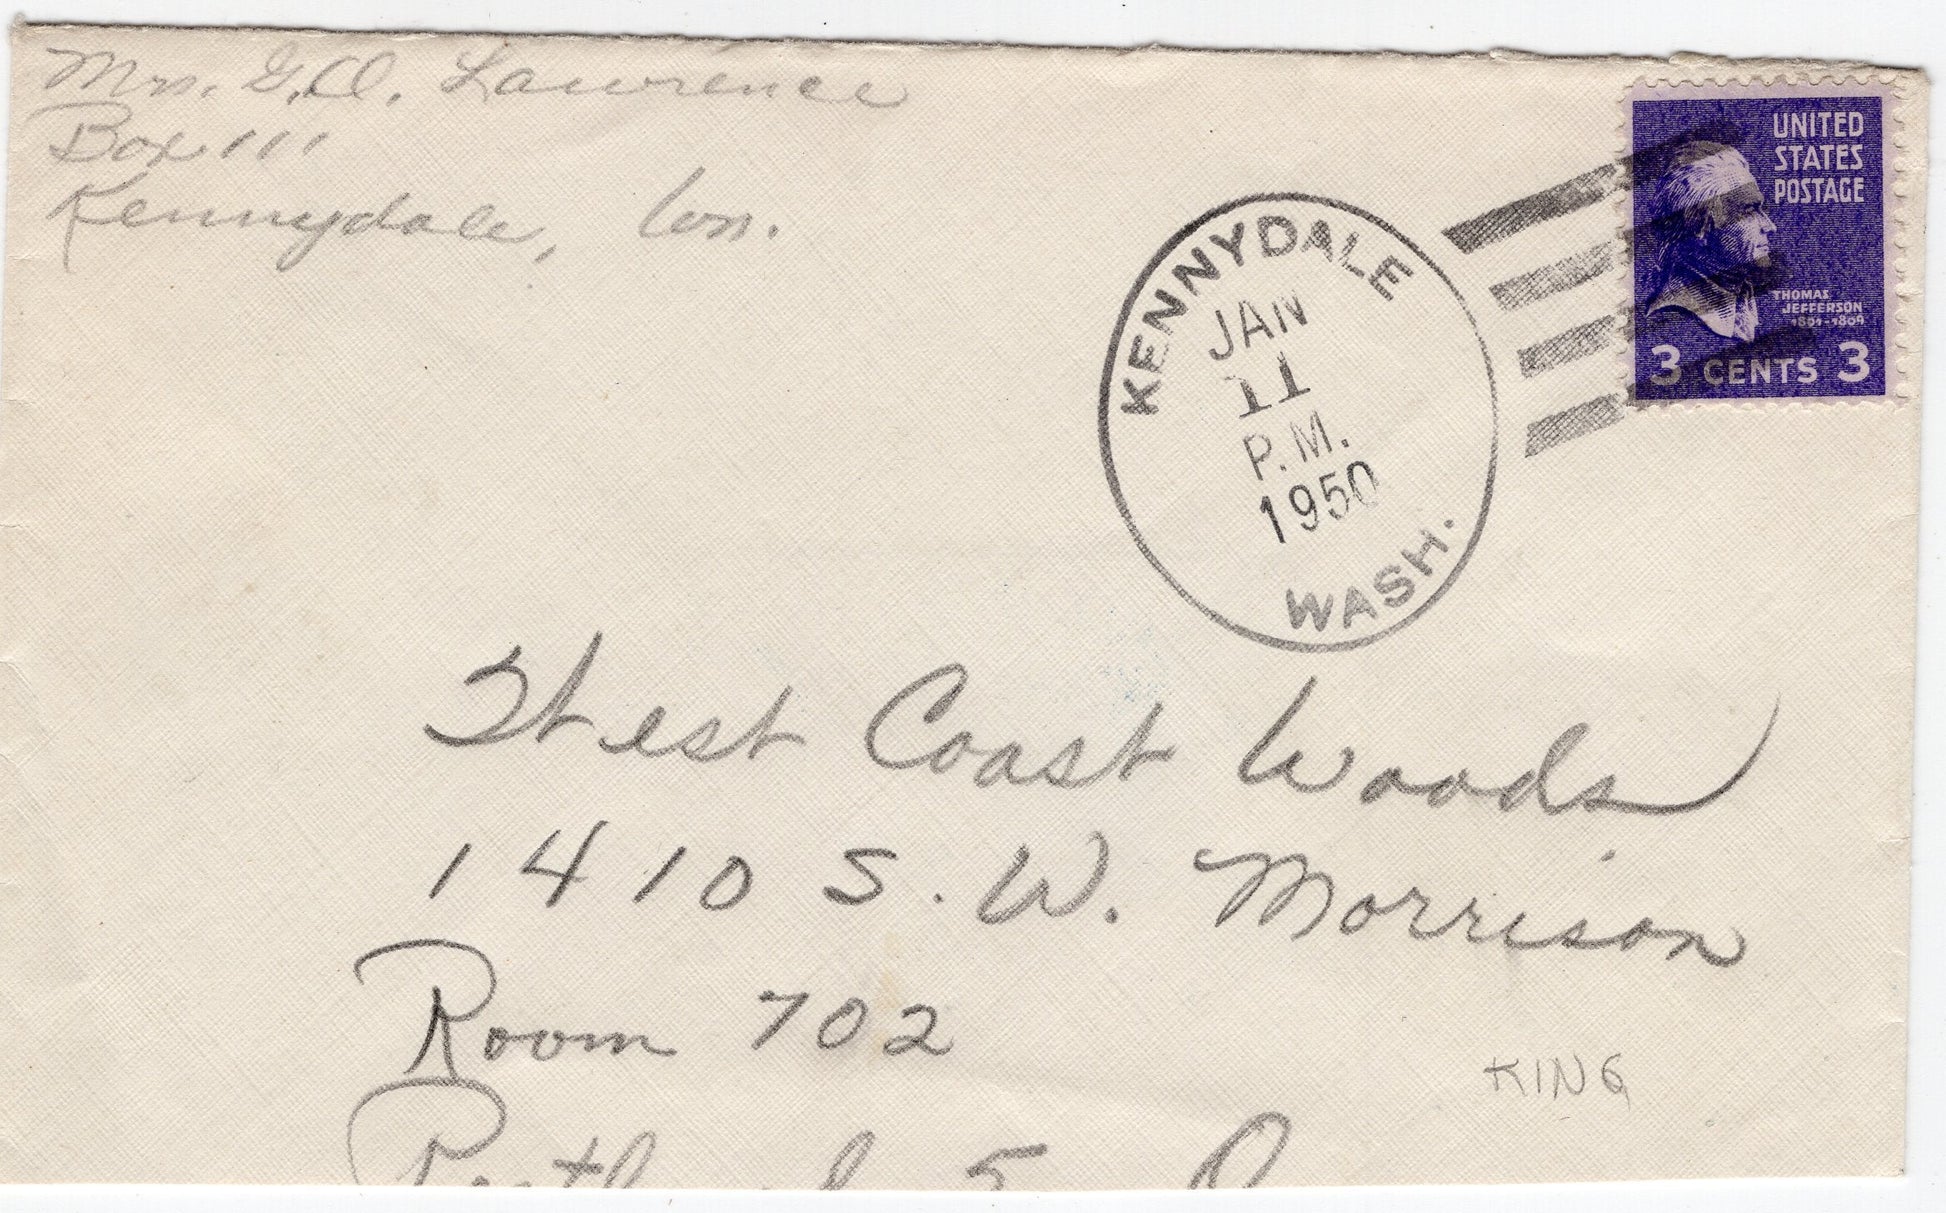 Mrs. G.O. Lawrence
Box 111
Kennydale, Wn.
UNITED
STATES
POSTAGE
THOMAS
JEFFERSON
1801-1809
3 CENTS 3
KENNYDALE
JAN
11
P.M.
1950
WASH.
West Coast Woods
1410 S. W. Morrison
Room 702
KING
Portland 5